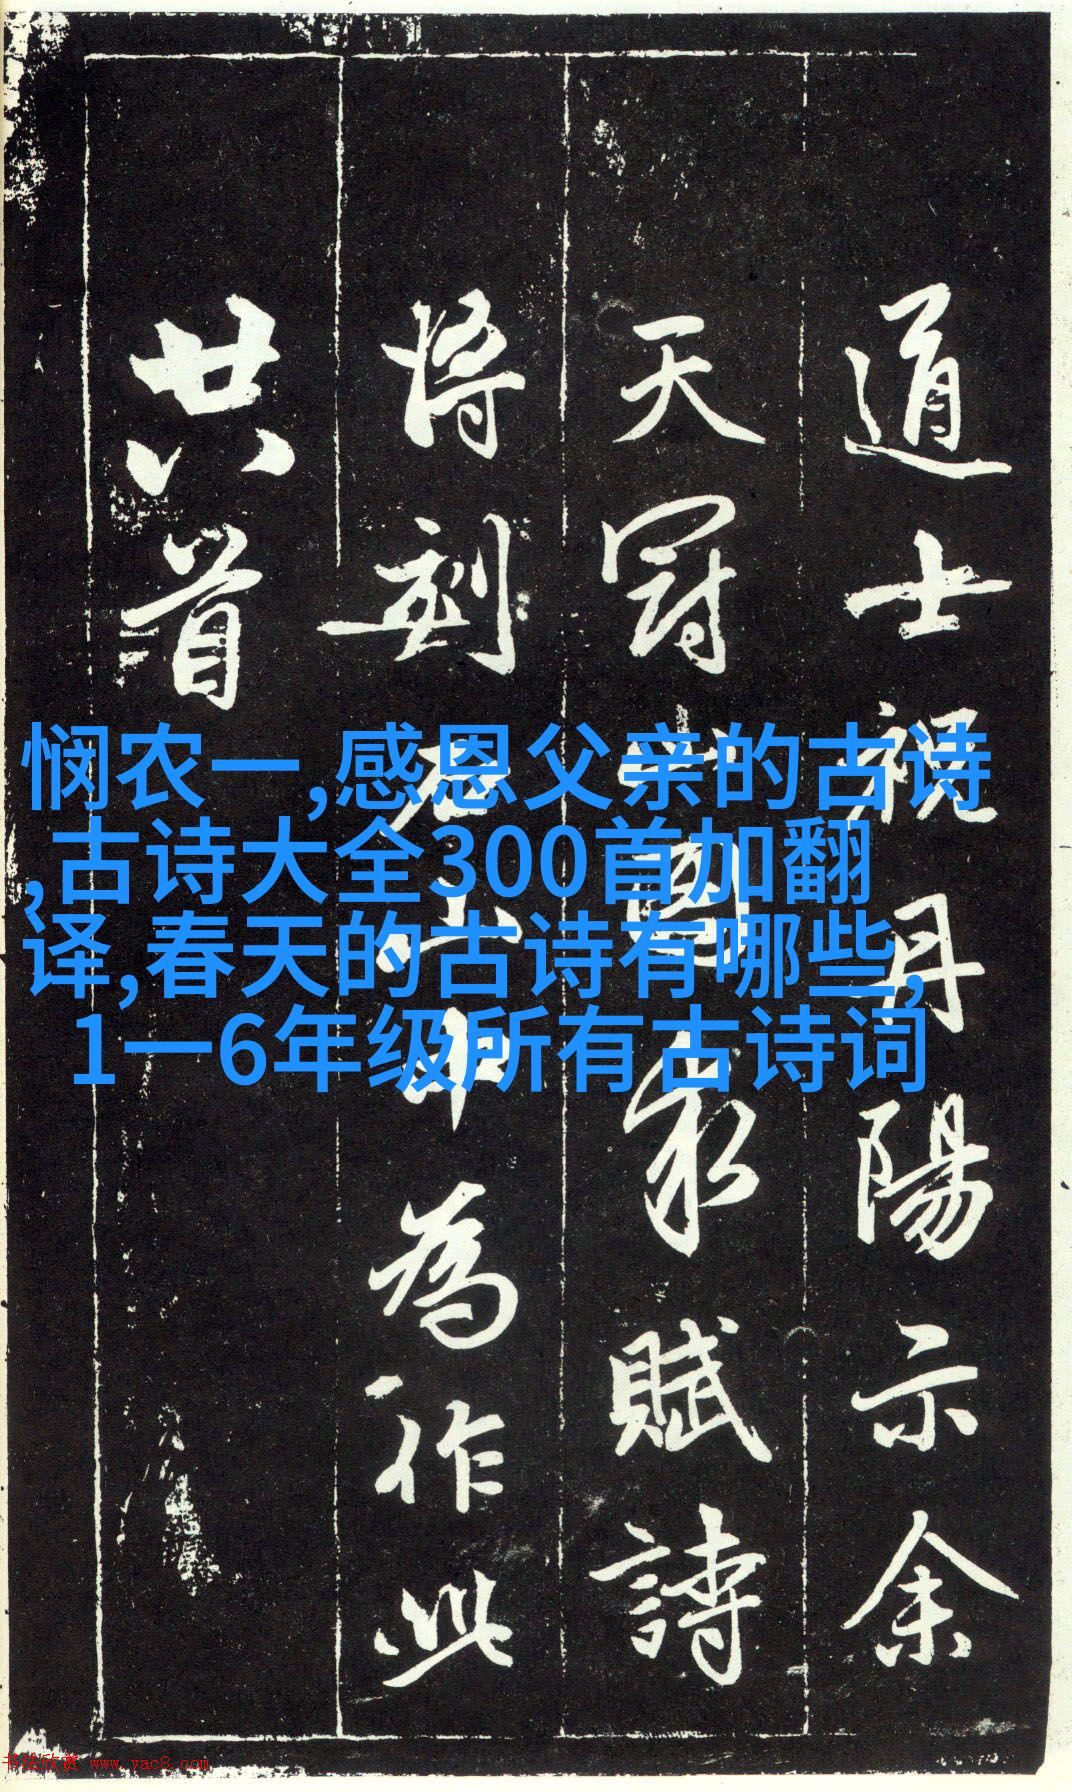 道士祝丹陽示余
天冠山圖求賦詩
將刻石山中為作此
廿八首
悯农一,感恩父亲的古诗
,古诗大全300首加翻
译,春天的古诗有哪些,
1一6年级所有古诗词
书法欣赏 www.yac8.com